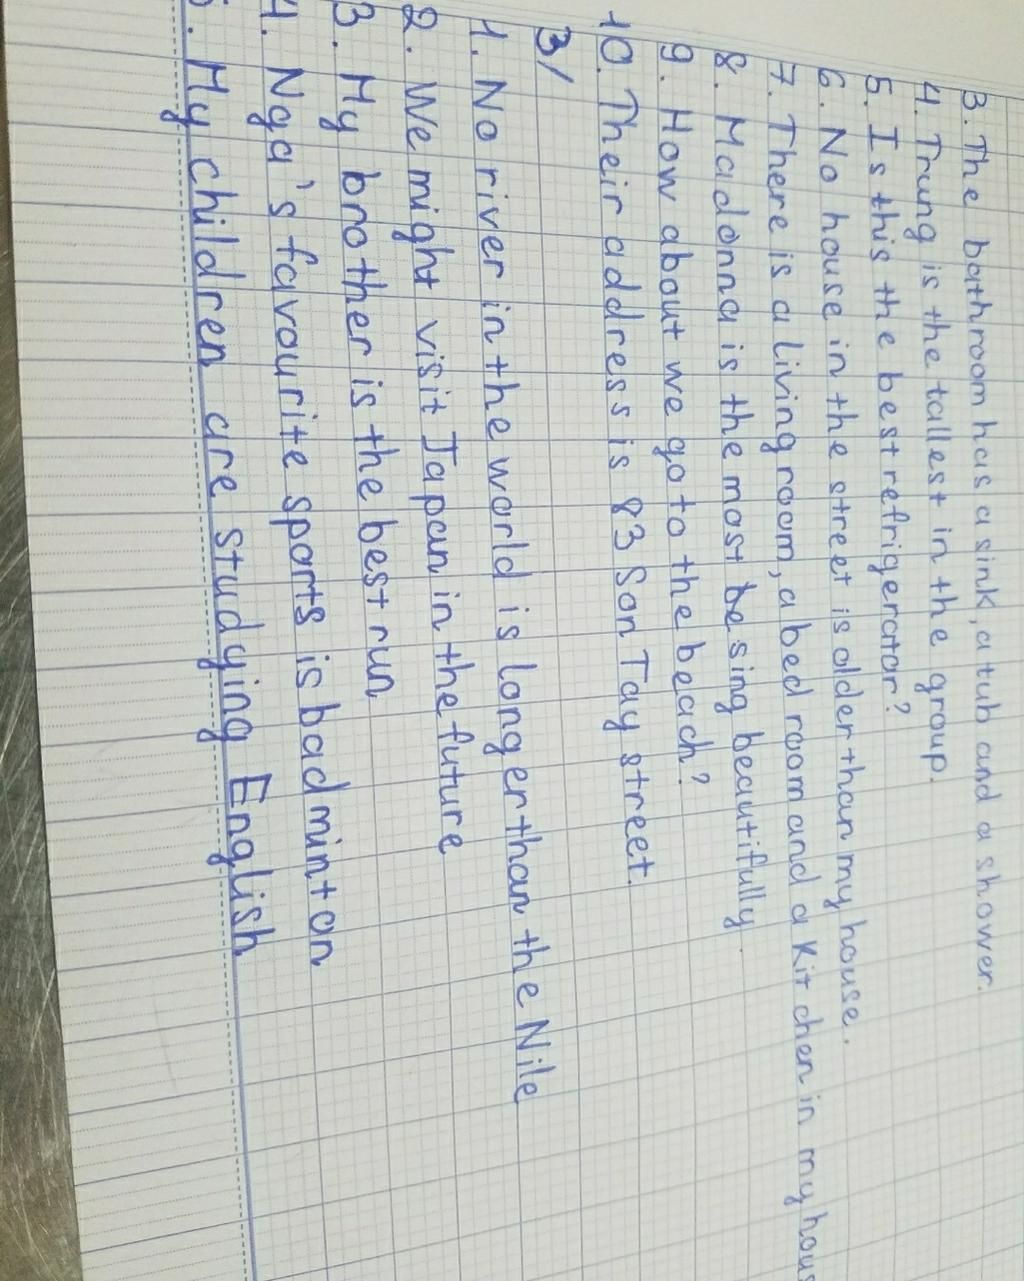 3. The bathroom has a sink, a tub and a shower.
4. Trung is the tallest in the group.
5. Is this the best refrigerator?
6. No house in the street is older than my house.
7. There is a living room, a bed room and a kitchen in my hous
8. Madonna is the most be sing beautifully.
9. How about we go to the beach?
10. Their address is 83 Son Tay street.
3/
1. No river in the world is longer than the Nile
2. We might visit Japan in the future
3. My brother is the best run
4. Nga's favourite sports is badminton
5. My children are studying English